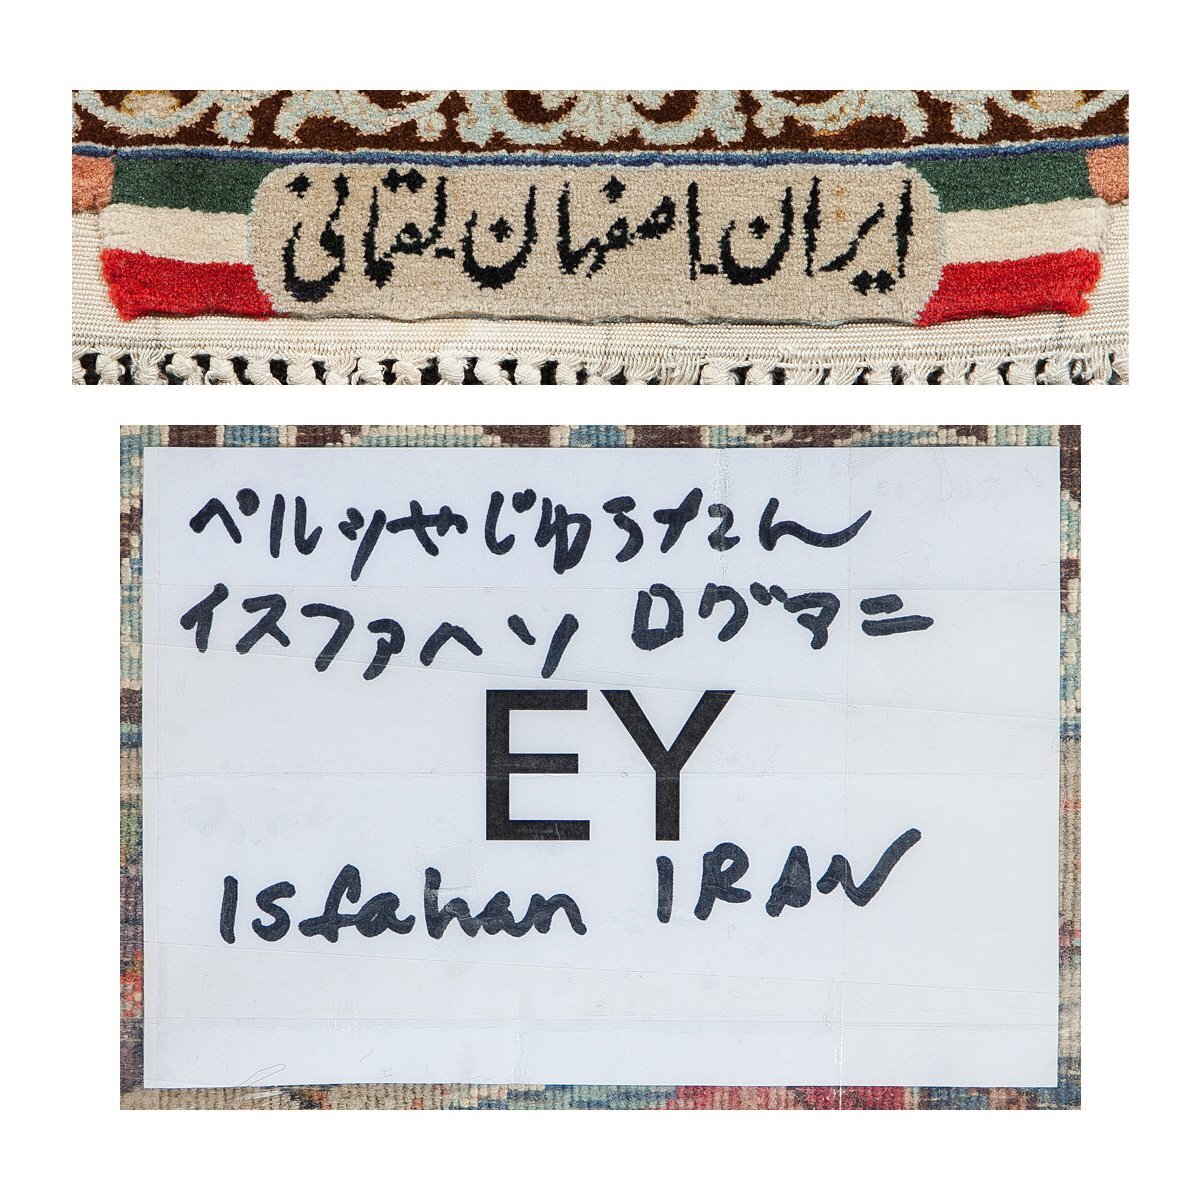 ایران_اصفهان_لقمانی
ペルシャじゅうたん
イスファハン ログマニ
EY
Isfahan IRAN